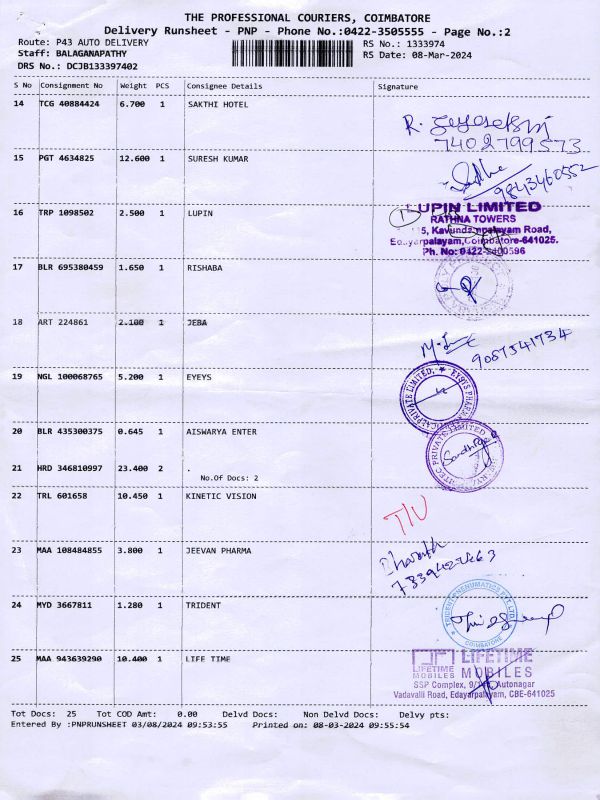 THE PROFESSIONAL COURIERS, COIMBATORE
Delivery Runsheet - PNP - Phone No.:0422-3505555 - Page No.:2
Route: P43 AUTO DELIVERY
RS No.: 1333974
Staff: BALAGANAPATHY
RS Date: 08-Mar-2024
DRS No.: DCJB133397402
S No Consignment No Weight PCS Consignee Details Signature
14 TCG 40884424 6.700 1 SAKTHI HOTEL
7402799573
15 PGT 4634825 12.600 1 SURESH KUMAR
9843460552
16 TRP 1098502 2.500 1 LUPIN
LUPIN LIMITED
RATHNA TOWERS
Coimbatore-641025.
Ph. No: 0422-
17 BLR 695380459 1.650 1 RISHABA
18 ART 224861 2.100 1 JEBA
9087541734
19 NGL 100068765 5.200 1 EYEYS
PRIVATE LIMITED
20 BLR 435300375 0.645 1 AISWARYA ENTER
PRIVATE LIMITED
21 HRD 346810997 23.400 2 .
No.Of Docs: 2
22 TRL 601658 10.450 1 KINETIC VISION
23 MAA 108484855 3.800 1 JEEVAN PHARMA
Bharath
24 MYD 3667811 1.280 1 TRIDENT
TRIDENT PNENUMATICS PVT. LTD.
COIMBATORE
25 MAA 943639290 10.400 1 LIFE TIME
LIFETIME MOBILES
LIFETIME
MOBILES
SSP Complex, Autonagar
Vadavalli Road, Edayarpalayam, CBE-641025
Tot Docs: 25 Tot COD Amt: 0.00 Delvd Docs: Non Delvd Docs: Delvy pts:
Entered By :PNPRUNSHEET 03/08/2024 09:53:55 Printed on: 08-03-2024 09:55:54